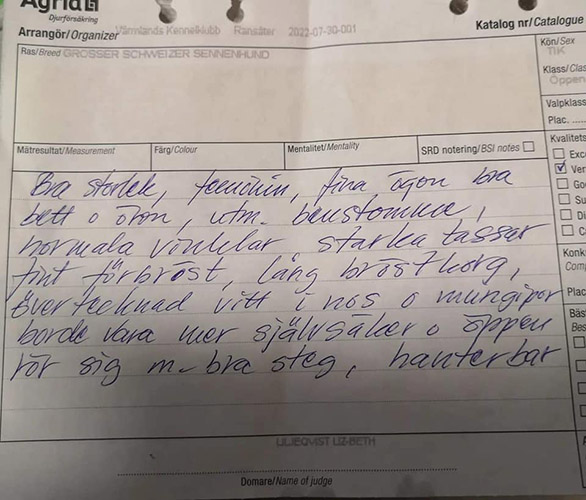 Agria
Djurförsäkring
Arrangör/Organizer Värmlands Kennelklubb Ransäter 2022-07-30-001
Katalog nr/Catalogue
Ras/Breed GROSSER SCHWEIZER SENNENHUND
Kön/Sex
TIK
Klass/Clas
Öppen
Valpklass
Plac. .....
Mätresultat/Measurement Färg/Colour Mentalitet/Mentality SRD notering/BSI notes
Kvalitets
Exc
Ver
Go
Su
D
C
Konk
Com
Plac
Bäs
Bes
Bra storlek, feminin, fina ögon bra
bett o öron, utm. benstomme,
normala vinklar, starka tassar
fint förbröst, lång bröstkorg,
övertecknad vitt i nos o mungipor
borde vara mer självsäker o öppen
rör sig m bra steg, hanterbar
LILJEQVIST LIZ-BETH
Domare/Name of judge